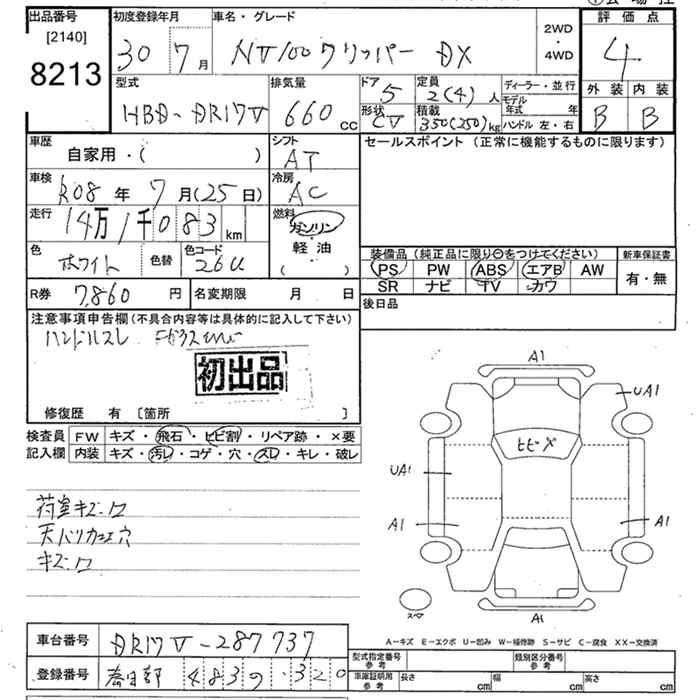 出品番号 [2140] 8213
初度登録年月 30 7月
車名・グレード NV100クリッパー DX
2WD・4WD
評価点 4
外装 B 内装 B
型式 HBD-DR17V
排気量 660cc
ドア 5
定員 2(4)人
ディーラー・並行
モデル年式 年
形状 CV
積載 350(250)kg
ハンドル 左・右
車歴 自家用・( )
シフト AT
セールスポイント (正常に機能するものに限ります)
車検 R08年 7月(25日)
冷房 AC
走行 14万1千083km
燃料 ガソリン
軽油
( )
色 ホワイト 色替 色コード 26U
装備品 (純正品に限り○をつけてください)
新車保証書
PS PW ABS エアB AW
SR ナビ TV カワ
有・無
R券 7,860円
名変期限 月 日
後日品
注意事項申告欄(不具合内容等は具体的に記入して下さい)
ハンドルスレ
初出品
修復歴 有 [箇所 ]
検査員記入欄
FW キズ・飛石・ヒビ割・リペア跡・×要
内装 キズ・汚れ・コゲ・穴・スレ・キレ・破レ
荷室キズ
キズ
A1
UA1
ヒビ×
UA1
A1
A1
スペア
A1
A-キズ E-エクボ U-凹み W-補修跡 S-サビ C-腐食 XX-交換済
車台番号 DR17V-287737
登録番号 春日部 483 320
型式指定番号 参考
類別区分番号 参考
車庫証明用 参考 長さ cm 幅 cm 高さ cm